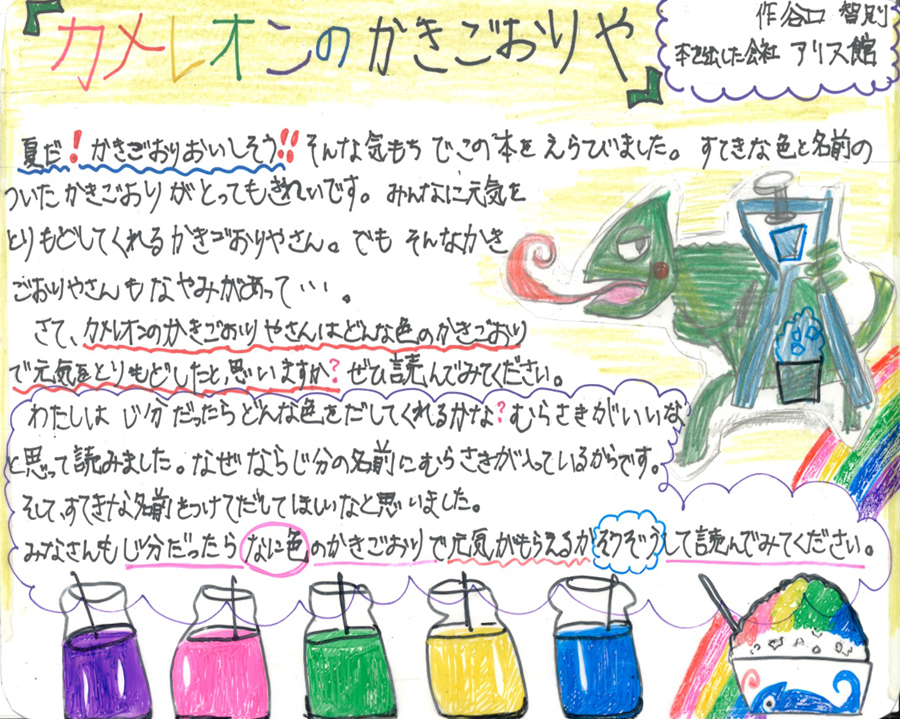 『カメレオンのかきごおりや』
作谷口 智則
本を出した会社 アリス館
夏だ！かきごおりおいしそう!!そんな気もちでこの本をえらびました。すてきな色と名前の
ついたかきごおりがとってもきれいです。みんなに元気を
とりもどしてくれるかきごおりやさん。でもそんなかき
ごおりやさんもなやみがあって…。
さて、カメレオンのかきごおりやさんはどんな色のかきごおり
で元気をとりもどしたと思いますか？ぜひ読んでみてください。
わたしはじ分だったらどんな色をだしてくれるかな？むらさきがいいな
と思って読みました。なぜならじ分の名前にむらさきが入っているからです。
そして、すてきな名前をつけてだしてほしいなと思いました。
みなさんもじ分だったらなに色のかきごおりで元気がもらえるかそうぞうして読んでみてください。